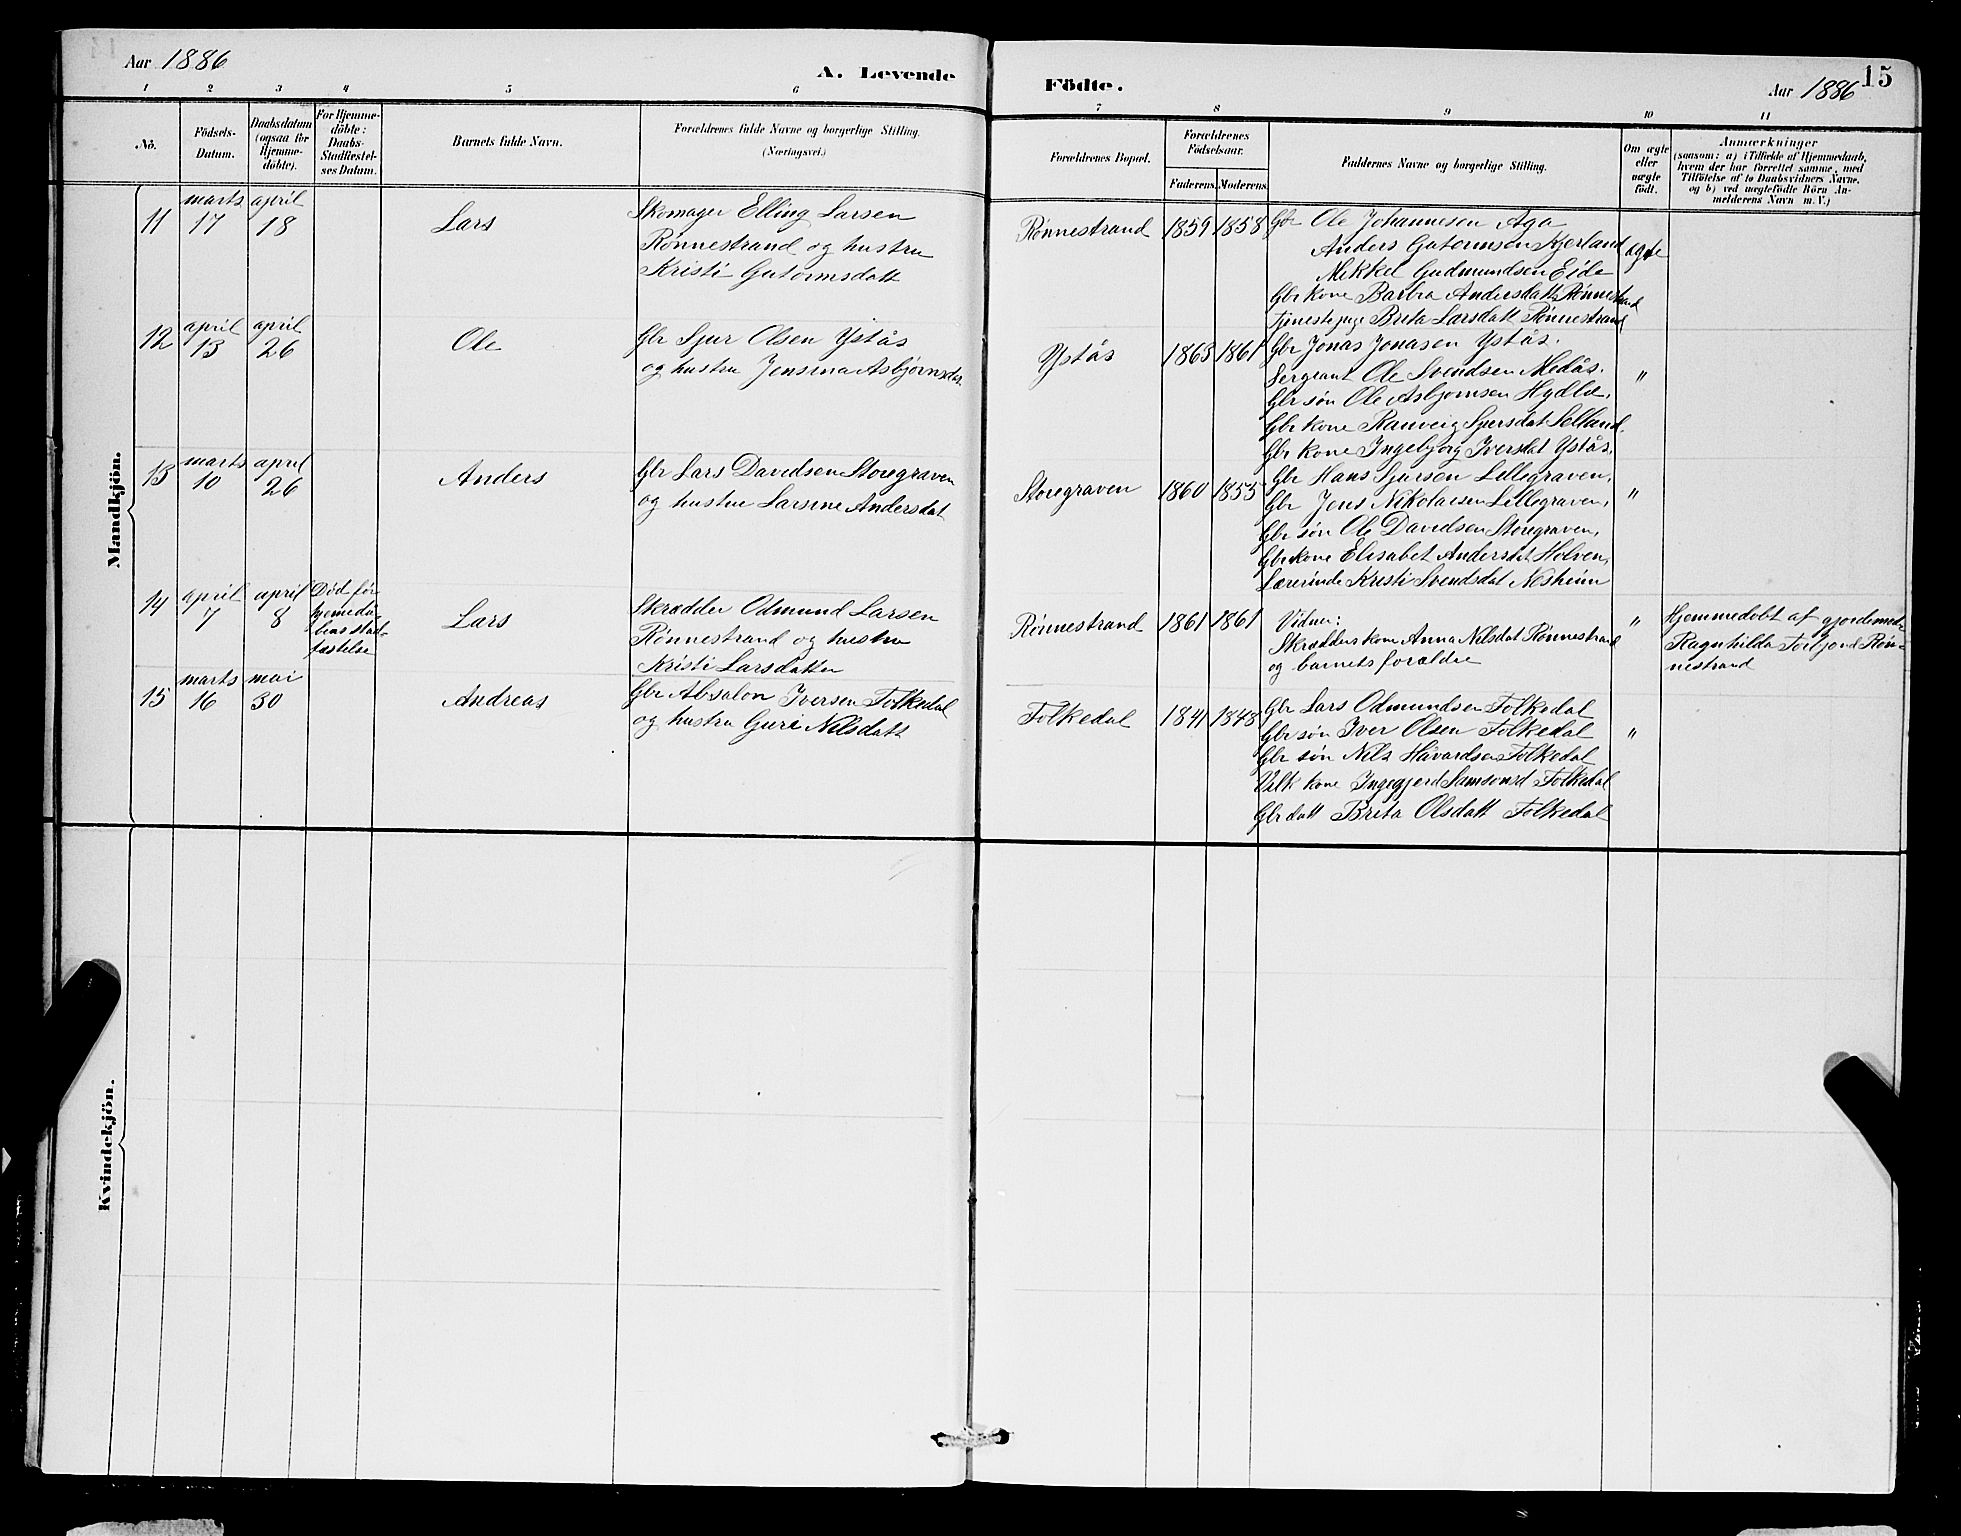 Aar 1886
A. Levende
Födte.
Aar 1886
15
1 2 3 4 5 6 7 8 9 10 11
No.
Födsels-
Datum.
Daabsdatum
(ogsaa for
Hjemme-
döbte).
For Hjemme-
döbte:
Daabs-
Stadfæstel-
ses Datum.
Barnets fulde Navn.
Forældrenes fulde Navne og borgerlige Stilling.
(Næringsvei.)
Forældrenes Bopæl.
Forældrenes
Födselsaar.
Faderens. Moderens.
Faddernes Navne og borgerlige Stilling.
Om ægte
eller
uægte
födt.
Anmærkninger
(saasom: a) i Tilfælde af Hjemmedaab,
hvem der har forrettet samme, med
Tilföielse af to Daabsvidners Navne,
og b) ved uægtefödte Börn An-
melderens Navn m. V.)
Mandkjön.
11
marts
17
april
18
Lars
Skomager Elling Larsen
Rønnestrand og hustru
Kristi Gutormsdatt
Rønnestrand
1859
1858
Gbr Ole Johannesen Aga
Anders Gutormsen Kjerland
Mikkel Gudmundsen Eide
Gbr kone Barbra Andersdatt Rønnestrand
Tjenestepige Brita Larsdatt Rønnestrand
ægte
12
april
13
april
26
Ole
Gbr Sjur Olsen Ystås
og hustru Jensina Asbjørnsdat
Ystås
1863
1861
Gbr Jonas Jonasen Ystås.
Sergeant Ole Svendsen Medås.
Gbr søn Ole Asbjørnsen Hydle.
Gbr kone Ranveig Sjursdat Selland.
Gbr kone Ingebjørg Iversdat Ystås.
"
13
marts
10
april
26
Anders
Gbr Lars Davidsen Storegraven
og hustru Larsine Andersdat
Storegraven
1860
1855
Gbr Hans Sjursen Lillegraven,
Gbr Jens Nikolaisen Lillegraven,
Gbr søn Ole Davidsen Storegraven,
Gbr kone Elisabet Andersdat Holven,
Lærerinde Kristi Svendsdat Nesheim
"
14
april
7
april
8
Død før
hjemedå-
bens stad-
fæstelse
Lars
Skrædder Odmund Larsen
Rønnestrand og hustru
Kristi Larsdatter
Rønnestrand
1861
1861
Vidner:
Skrædders kone Anna Nilsdat Rønnestrand
og barnets forældre
"
Hjemmedøbt af gjordemod-
Ragnhilda Torbjønd Røn-
nestrand
15
marts
16
mai
30
Andreas
Gbr Absalon Iversen Folkedal
og hustru Guri Nilsdatt
Folkedal
1841
1848
Gbr Lars Odmundsen Folkedal
Gbr søn Iver Olsen Folkedal
Gbr søn Nils Håvardsen Folkedal
Vilk kone Ingegjerd Samsonsd Folkedal
Gbr datt Brita Olsdatt Folkedal
"
Kvindekjön.